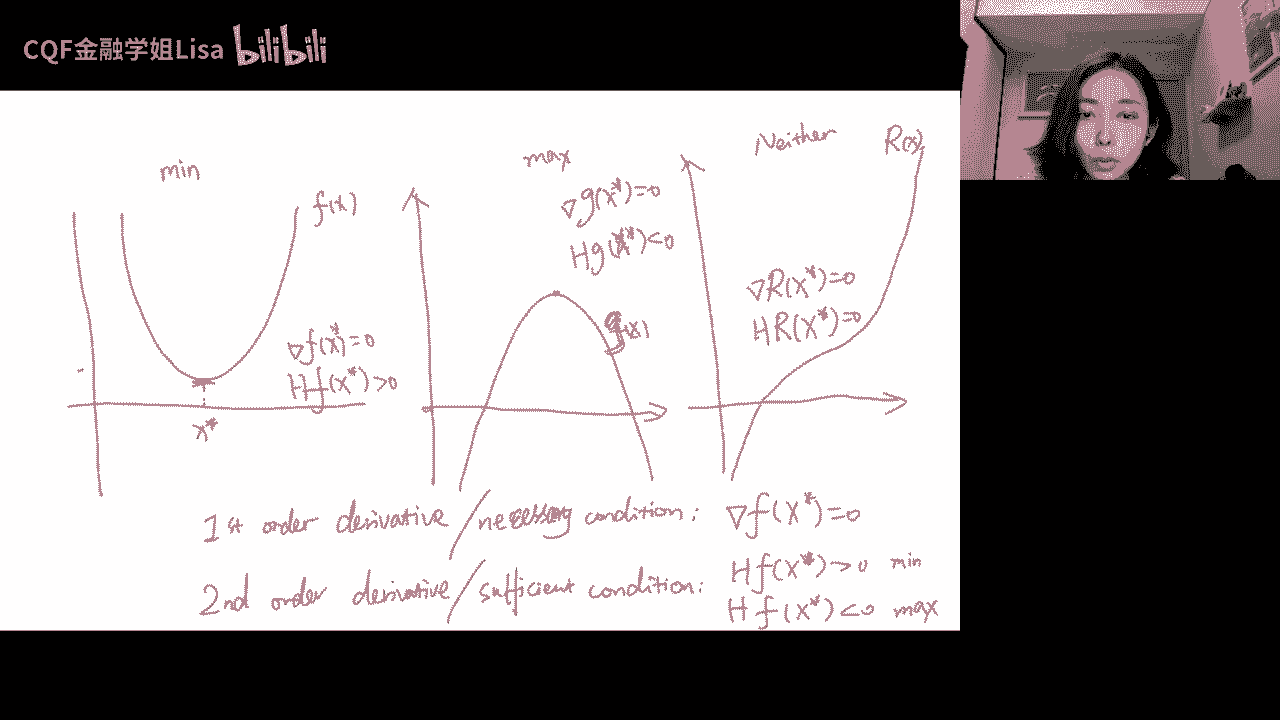 CQF金融学姐Lisa bilibili
min
f(x)
∇f(x*)=0
Hf(x*)>0
x*
max
∇g(x*)=0
Hg(x*)<0
g(x)
Neither
R(x)
∇R(x*)=0
HR(x*)=0
1st order derivative/necessary condition: ∇f(x*)=0
2nd order derivative/sufficient condition: Hf(x*)>0 min
Hf(x*)<0 max